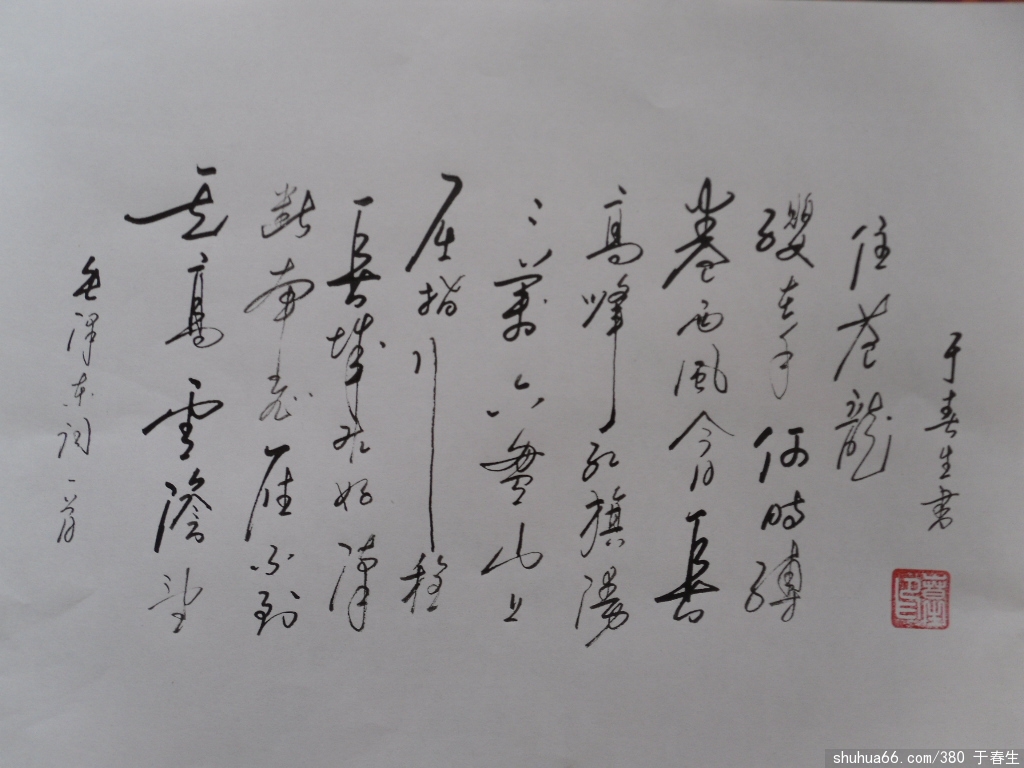 毛泽东词一首
天高雲澹望
斷南飛雁不到
長城非好漢
屈指行程
二萬六盤山上
高峰紅旗漫
卷西風今日長
纓在手何時縛
住蒼龍
于春生書
shuhua66.com/380 于春生